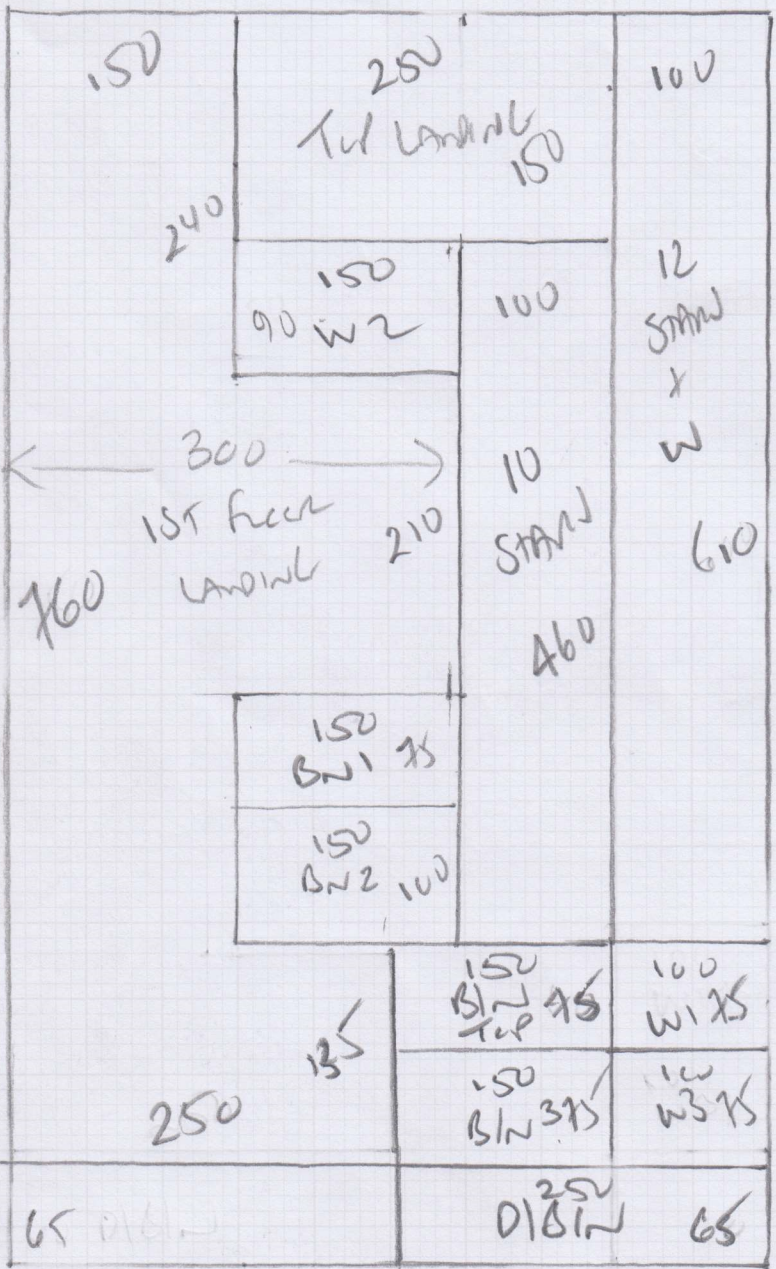 150
250
TOP LANDING
150
100
240
150
90 W2
100
12
STAIRS
X
W
300
1ST FLOOR
LANDING
210
10
STAIRS
610
760
460
150
BN1 75
150
BN2 100
150
BIN 75
TOP
100
W1 75
135
250
150
BIN 3 75
100
W3 75
65 D/BIN
250
D/BIN 65